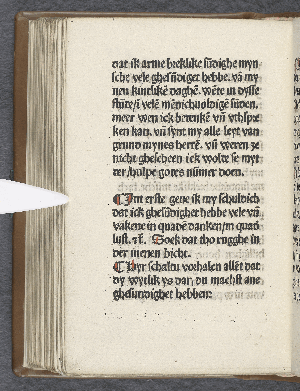 dat ik arme breklike sūdighe myn
sche vele ghesūdiget hebbe. vā my
nen kintliken daghē. wēte in dysse
stūde/ī velē mēnichuoldigē sūden.
meer wen ick bedenkē vñ vthspre
ken kan. vñ synt my alle leyt van
grund mynes hertē. vñ weren ze
nicht ghescheen ick wolde se myt
der hulpe godes nūmer doen.
¶ Jnt erste geue ik my schuldich
dat ick ghesūdiget hebbe vele vñ
vakene in quadē danken/in quad
lust. ꝛc̄. Soek dat tho rugghe in
der menen bicht.
¶ Hyr schaltu vorhalen allēt dat
dy wytlik ys dar, du machst ane
ghesundighet hebben: